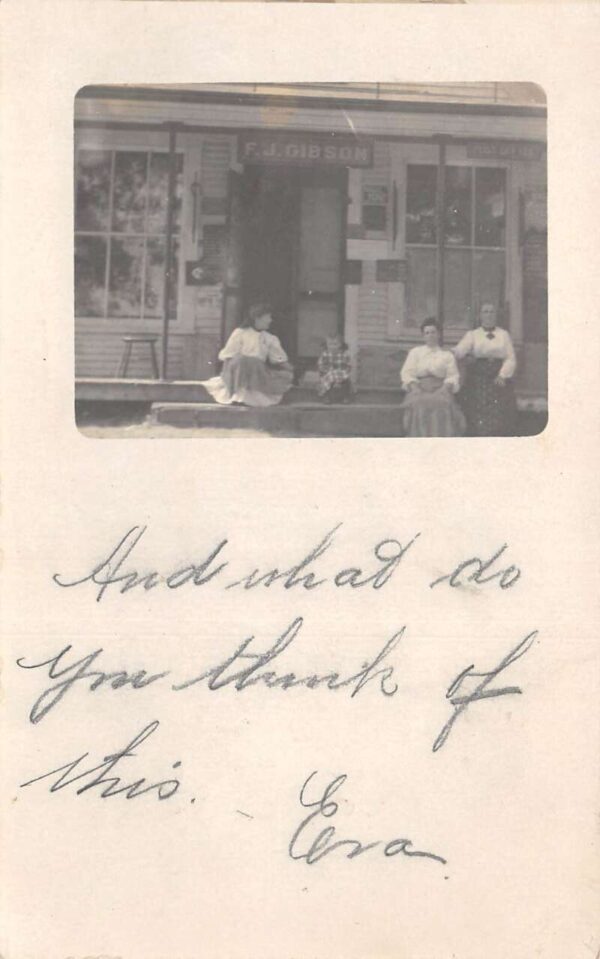 F.J. GIBSON
POST OFFICE
And what do
you think of
this. - Eva.